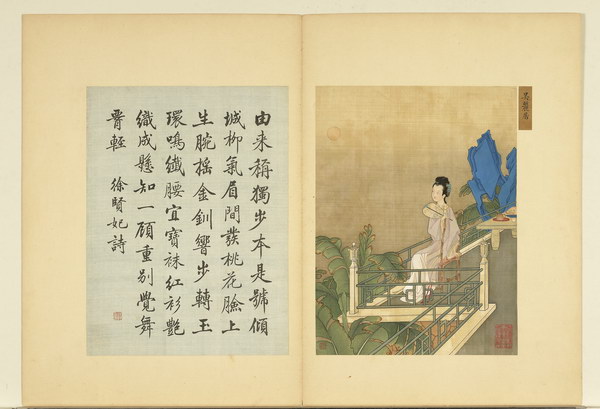 由来稱獨步本是號傾
城柳氣眉間發桃花臉上
生腕摇金釧響步轉玉
環鳴纖腰宜寶袜紅衫艷
織成懸知一顧重別覺舞
輕 徐賢妃詩